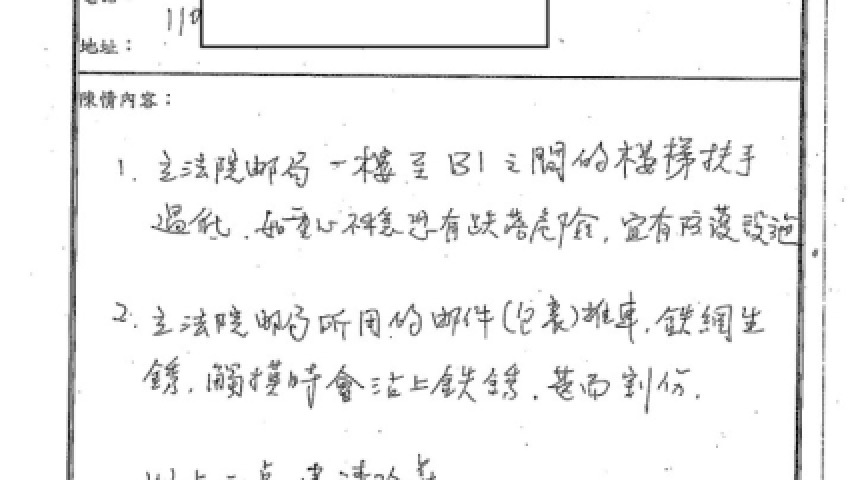 110
地址：
陳情內容：
1. 立法院邮局一樓至B1之間的樓梯扶手
過低，如重心不穩恐有跌落危險，宜有防護設施。
2. 立法院邮局所用的邮件(包裹)推車，鉄網生
銹，觸摸時會沾上鉄銹，甚而割伤.
以上二点建請改善